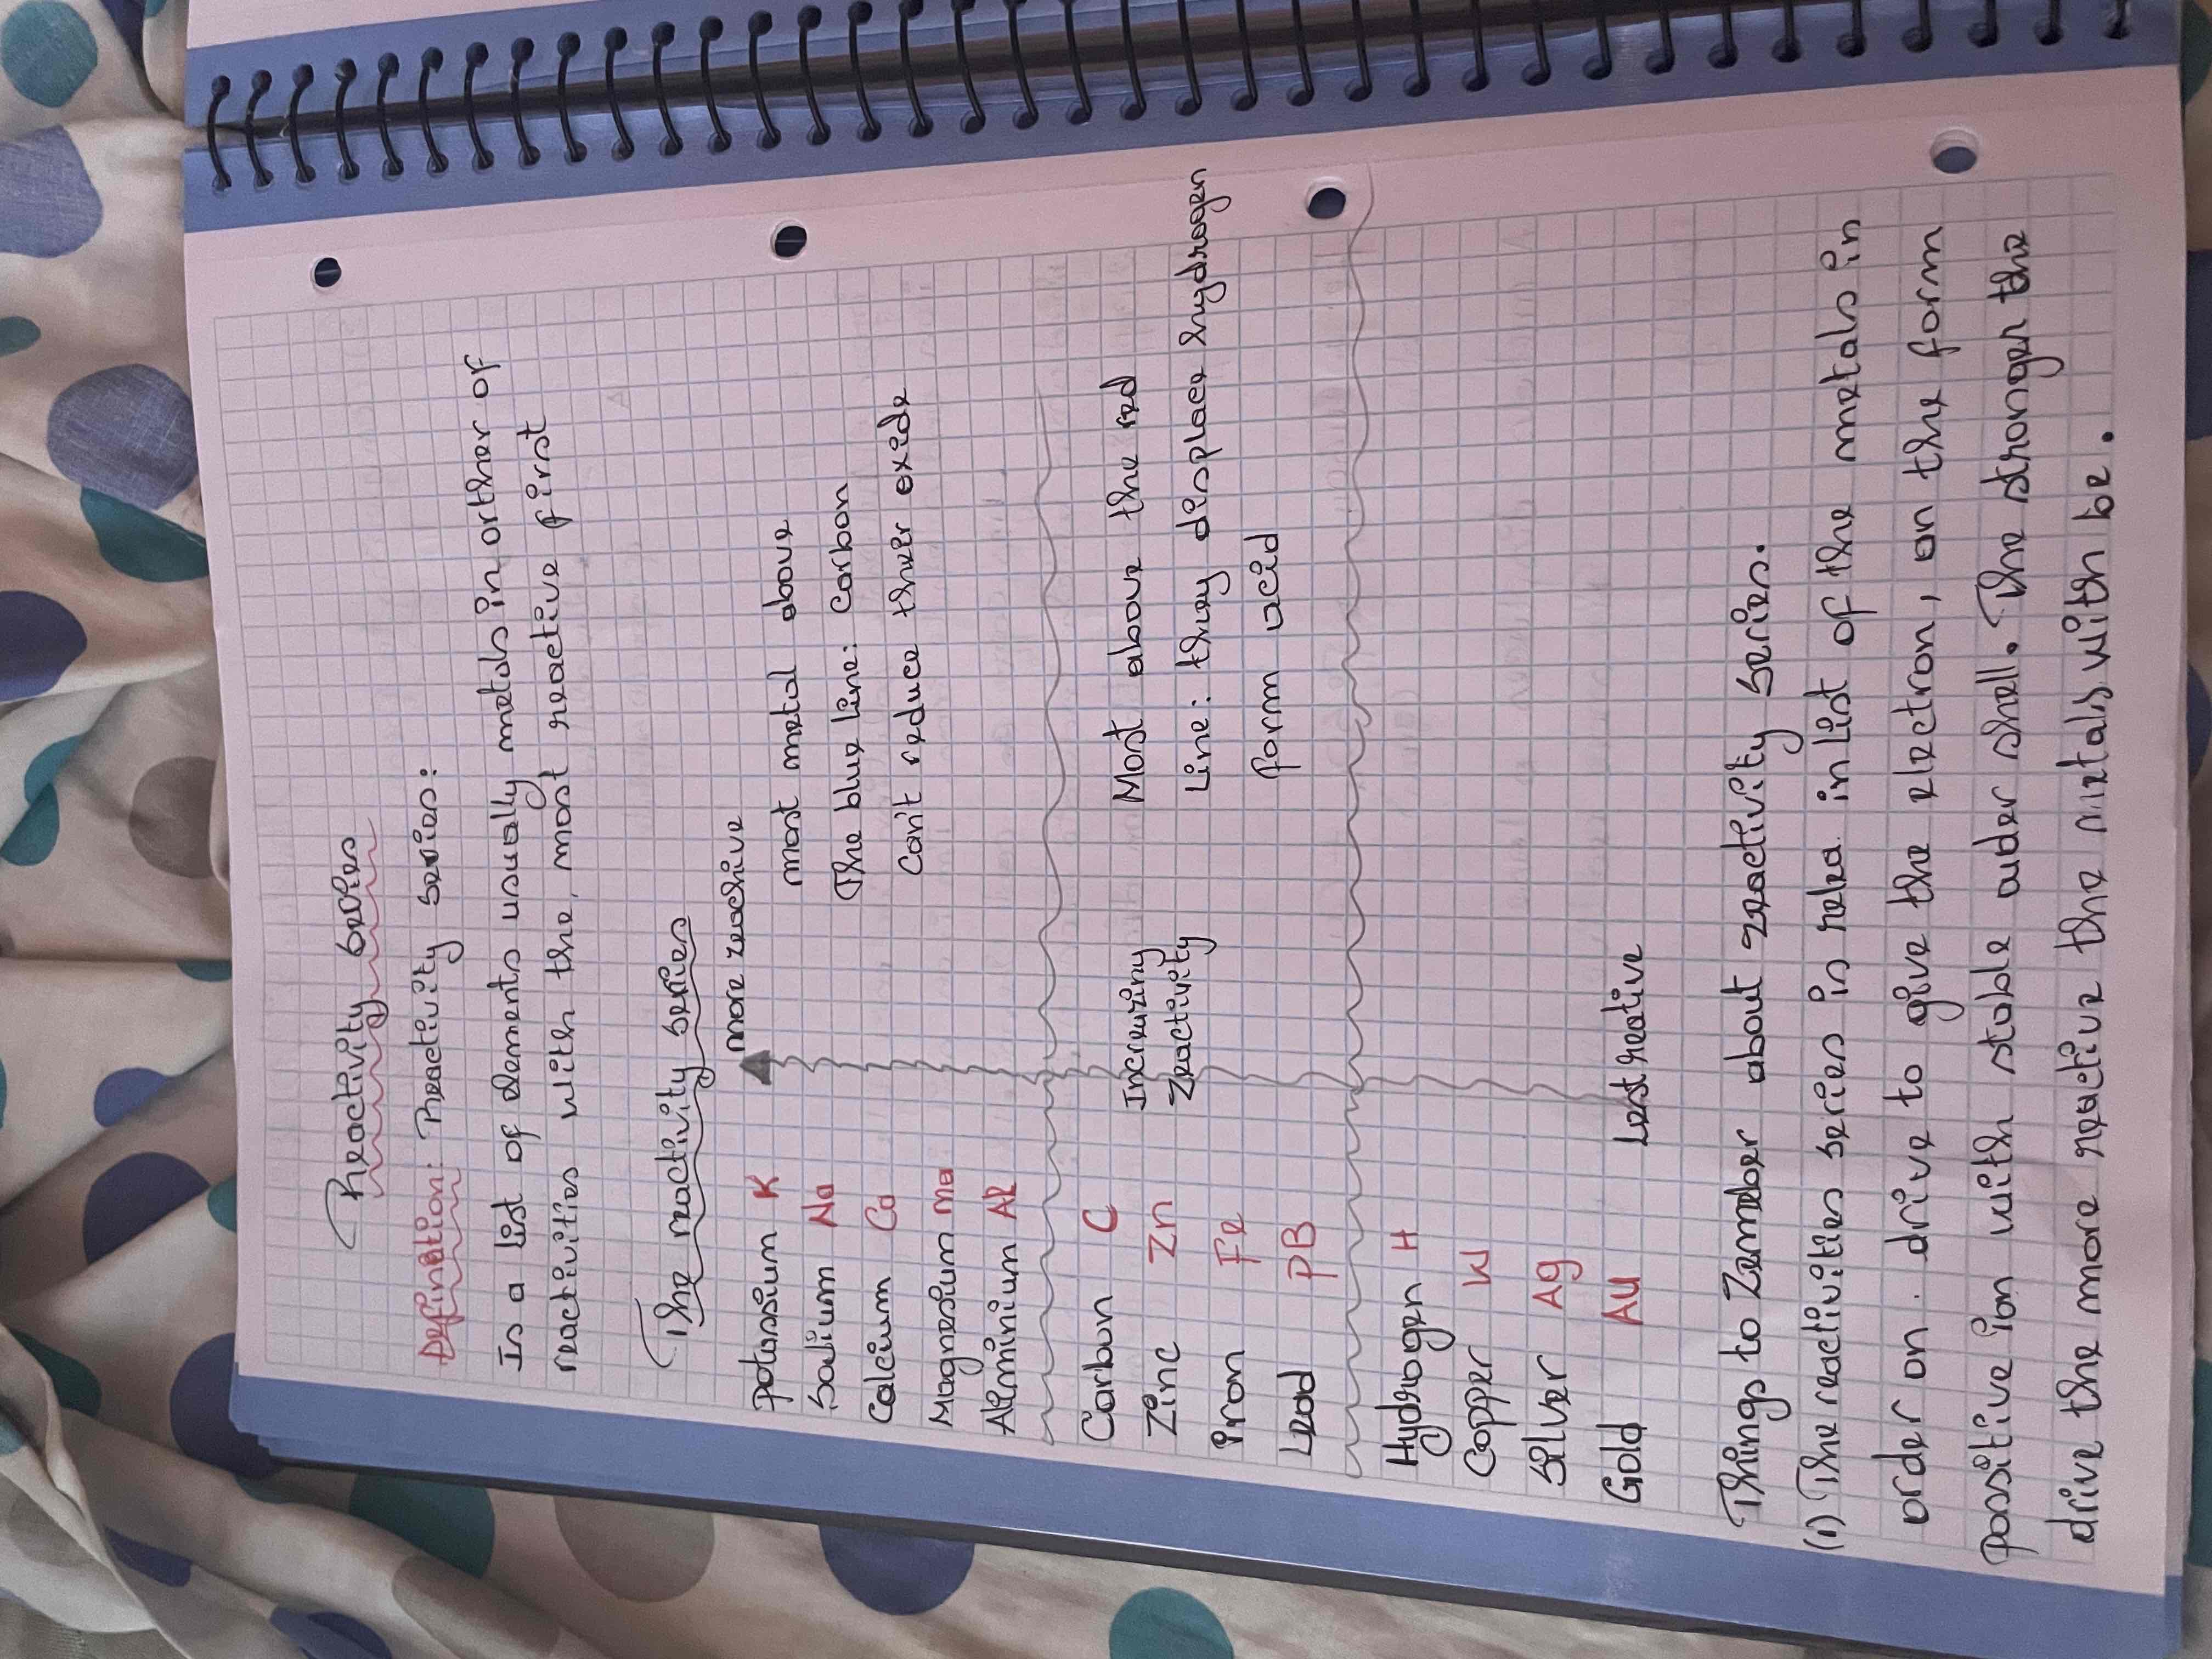 Reactivity series
Definition: Reactivity series:
Is a list of elements usually metals in orther of
reactivities with the, most reactive first
The reactivity series
more reachive
potassium K
most metal above
Sodium Na
The blue line: Carbon
Calcium Ca
Can't reduce their oxide
Magnesium Ma
Aliminium Al
Carbon C
Increasing
Most above the red
Zinc Zn
Reactivity
Line: they displace hydrogen
Iron Fe
form acid
Lead PB
Hydrogen H
Copper
Silver Ag
Gold AU
Lest reative
Things to Remeber about reactivity series.
(1) The reactivities series is rela in List of the metals in
order on. drive to give the electron, on the form
possitive ion with stable auder shell. The stronger the
drive the more reactive the metals with be.